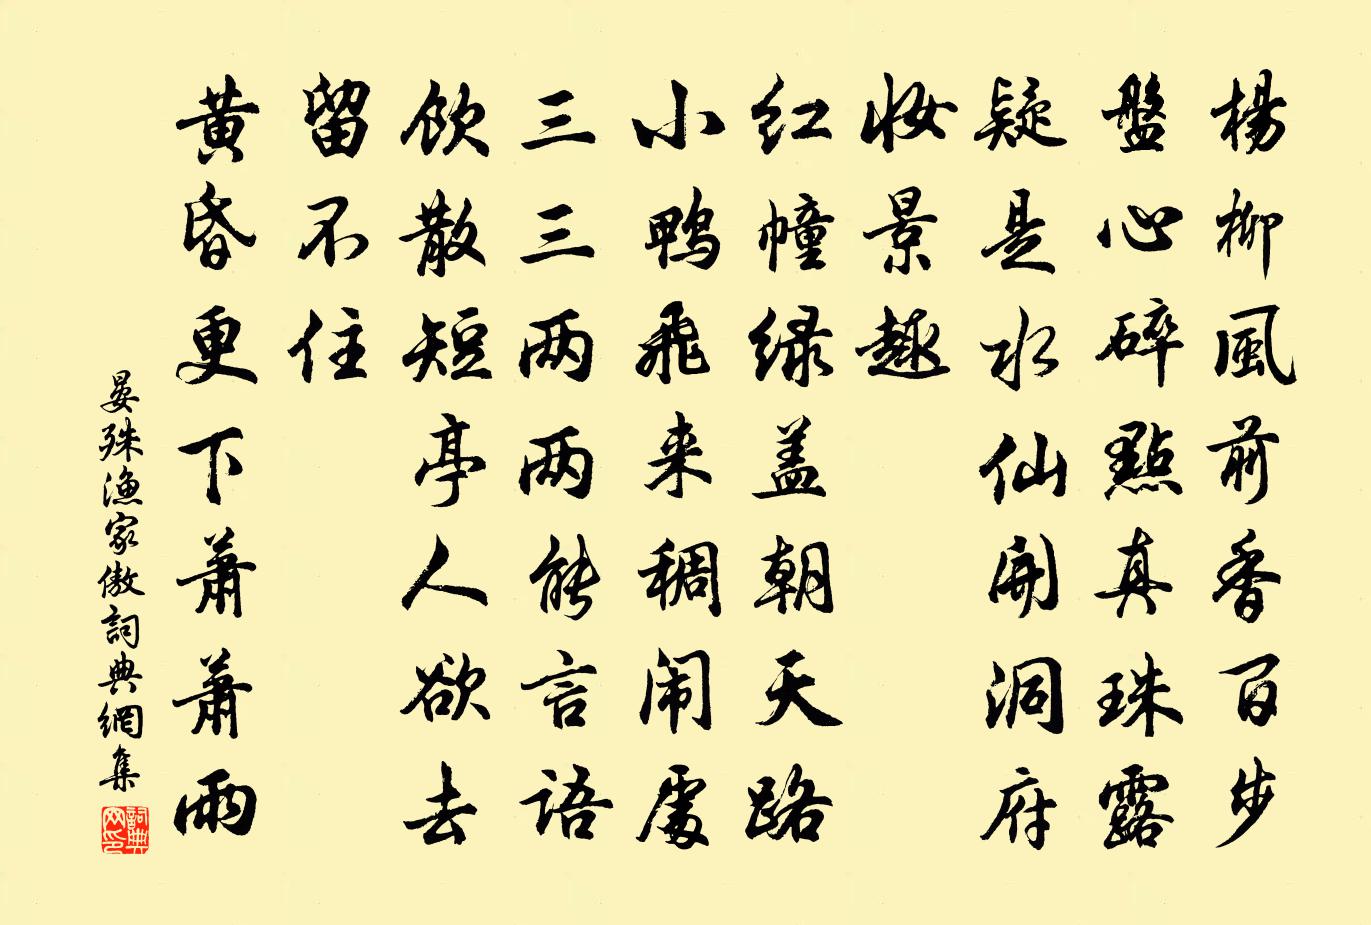 楊柳風前香百步
盤心碎點真珠露
疑是水仙開洞府
妝景趣
红幢绿盖朝天路
小鸭飛来稠闹處
三三两两能言語
飲散短亭人欲去
留不住
黄昏更下萧萧雨
晏殊漁家傲詞典網集
詞典网印